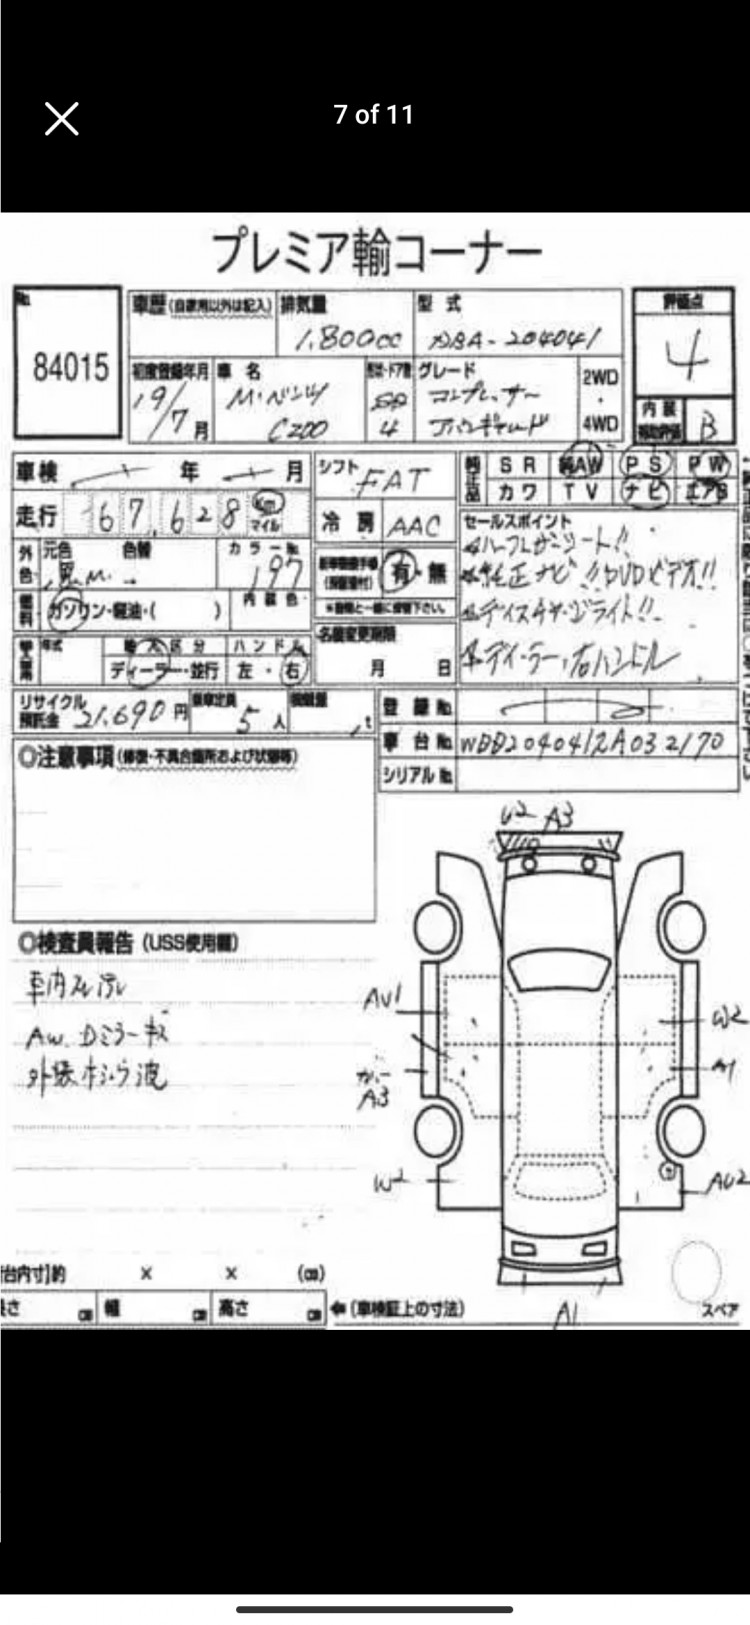 7 of 11
プレミア輸コーナー
No.
84015
車歴(自家用以外は記入)
排気量
1,800cc
型式
DBA-204041
評価点
4
初度登録年月
19/7月
車名
M・ベンツ
C200
形状・ドア数
SD
4
グレード
コンプレッサー
アバンギャルド
2WD
・
4WD
内装
補助評価
B
車検 年 月
シフト
FAT
純正品
SR 純AW PS PW
カワ TV ナビ エアB
走行 67,628 Km マイル
冷房 AAC
セールスポイント
ハーフレザーシート!!
純正ナビ!! DVDビデオ!!
ディスチャージライト!!
ディーラー・右ハンドル
外色
元色 色替
黒M.
カラーNo.
197
有・無
燃料
ガソリン・軽油・( )
内装色
名義変更期限
月 日
年式
輸入区分
ディーラー・並行
ハンドル
左・右
リサイクル
預託金
21,690円
乗車定員
5人
積載量
t
登録No.
車台No.
WDD2040412A032170
シリアルNo.
◎注意事項(修復・不具合箇所および状態等)
U2 A3
◎検査員報告(USS使用欄)
車内スレ汚レ
AW.Dミラーキズ
外装キズ
AU1
W2
A3
A1
W2
AU2
[台内寸]約 × × (cm)
長さ cm 幅 cm 高さ cm
(車検証上の寸法)
A1
スペア